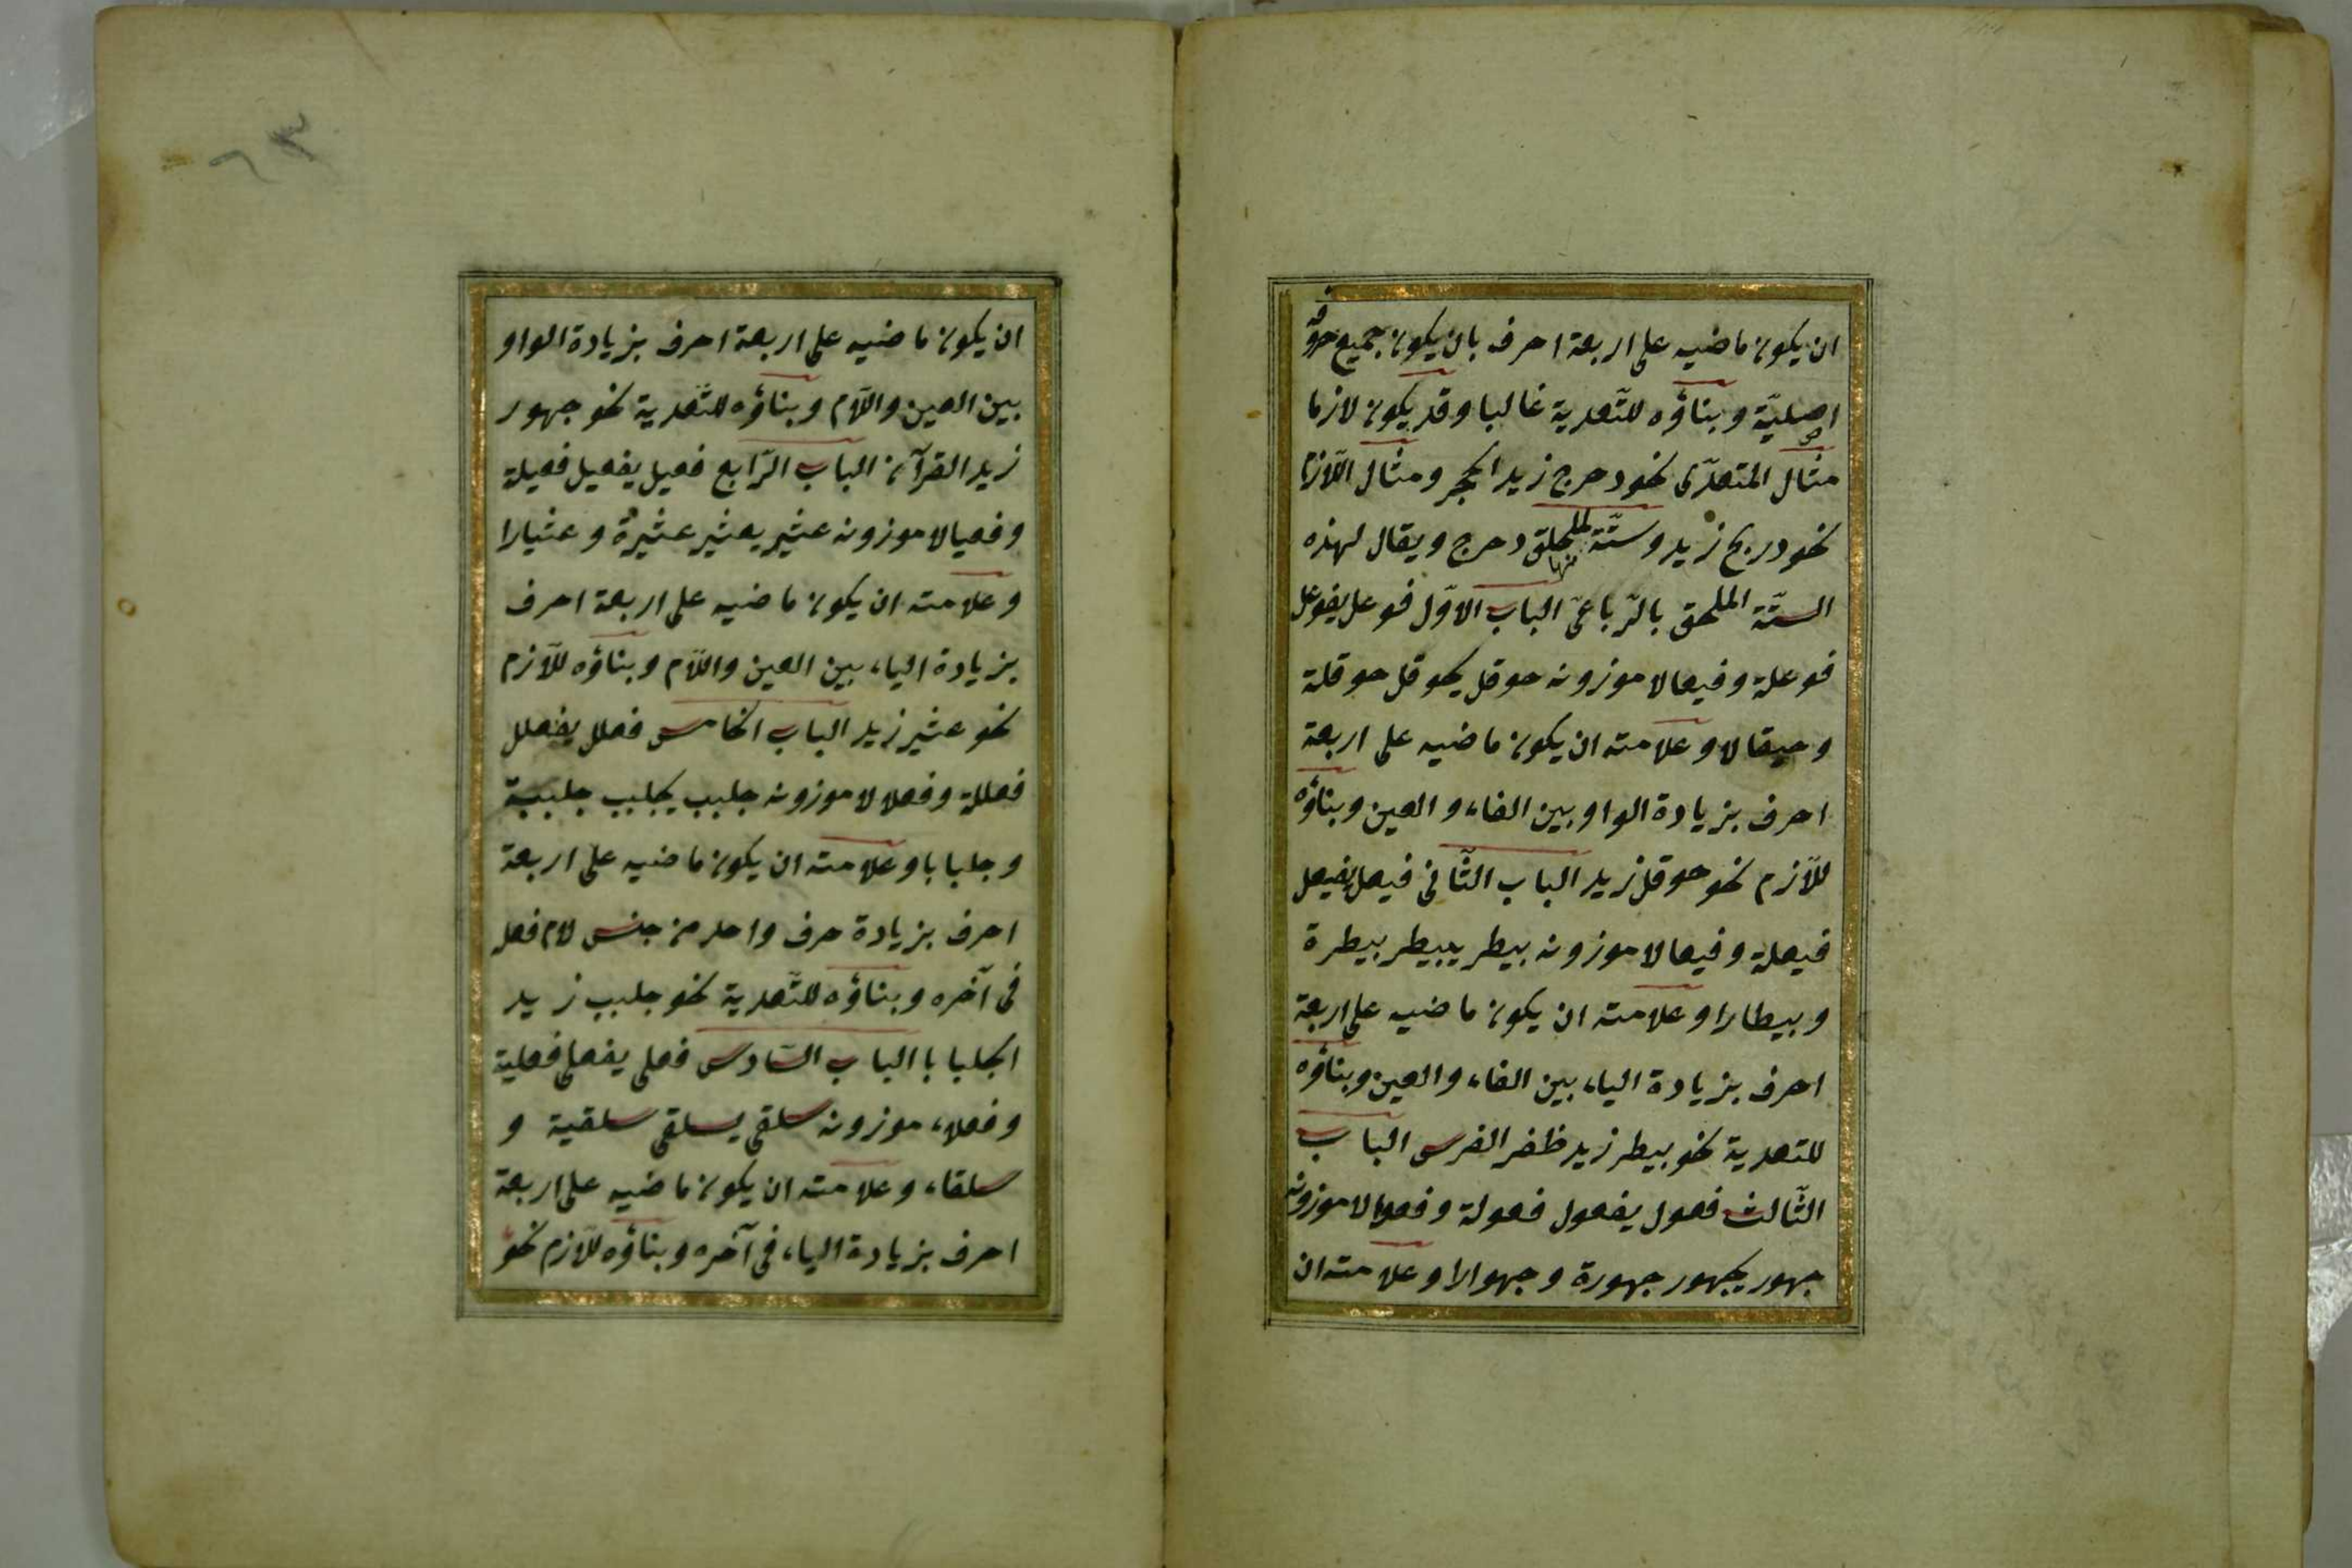 ان يكون ماضيه على اربعة احرف بان يكون جميع حروفه
اصليّة وبناؤه للتّعدية غالبا وقد يكون لازما
مثال المتعدّى نحو دحرج زيد الحجر ومثال اللّازم
نحو دربخ زيد وستّة للملحق دحرج ويقال لهذه
الستّة الملحق بالرّباعىّ الباب الاوّل فوعل يفوعل
فوعلة وفيعالا موزونه حوقل يحوقل حوقلة
وحيقالا وعلامته ان يكون ماضيه على اربعة
احرف بزيادة الواو بين الفاء والعين وبناؤه
للّازم نحو حوقل زيد الباب الثّانى فيعل يفيعل
فيعلة وفيعالا موزونه بيطر يبيطر بيطرة
وبيطارا وعلامته ان يكون ماضيه على اربعة
احرف بزيادة الياء بين الفاء والعين وبناؤه
للتعدية نحو بيطر زيد ظفر الفرس الباب
الثّالث فعول يفعول فعولة وفعوالا موزونه
جهور يجهور جهورة وجهوارا وعلامته ان
٦٣
ان يكون ماضيه على اربعة احرف بزيادة الواو
بين العين واللّام وبناؤه للتّعدية نحو جهور
زيد القرآن الباب الرّابع فعيل يفعيل فعيلة
وفعيالا موزونه عثير يعثير عثيرة وعثيارا
وعلامته ان يكون ماضيه على اربعة احرف
بزيادة الياء بين العين واللّام وبناؤه للّازم
نحو عثير زيد الباب الخامس فعلل يفعلل
فعللة وفعلالا موزونه جلبب يجلبب جلببة
وجلبابا وعلامته ان يكون ماضيه على اربعة
احرف بزيادة حرف واحد من جنس لام فعل
فى آخره وبناؤه للتّعدية نحو جلبب زيد
الجلبابا الباب السّادس فعلى يفعلى فعلية
وفعلاء موزونه سلقى يسلقى سلقية و
سلقاء وعلامته ان يكون ماضيه على اربعة
احرف بزيادة الياء فى آخره وبناؤه للّازم نحو